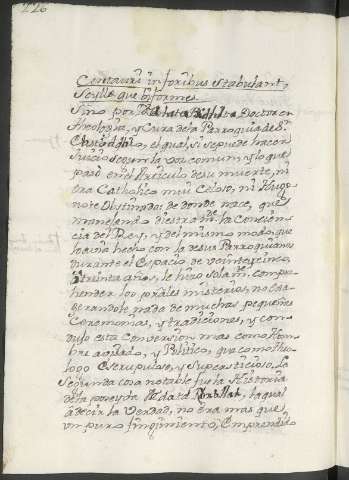 226
Centauri in foribus stabulant,
Scyllæ que biformes.
Sino por Doctor en
Theologia, y Cura de la Parroquia de Sn.
el qual, si se puede hacer
Juicio segun la voz comun, y lo que
pasò en el Articulo de su muerte, ni
era Catholico mui Celoso, ni Hugo
note Obstinado: de donde nace, que
manejando diestramte. la Concien
cia del Rey, y del mismo modo, que
havia hecho con la de sus Parroquianos
durante el Espacio de veinte y cinco,
ò treinta años, le hizo solamte. compre
hender los prâles misterios, no car
gandole nada de muchas pequeñas
Ceremonias, y tradiciones, y con
dujo esta Conversion mas como Hom
bre avisado, y Politico, que como Theo
logo Escrupuloso, y Supersticioso. La
Segunda cosa notable fue la Historia
de la poseyda la qual
à decir la Verdad, no era mas que
un puro fingimiento, Emprendido